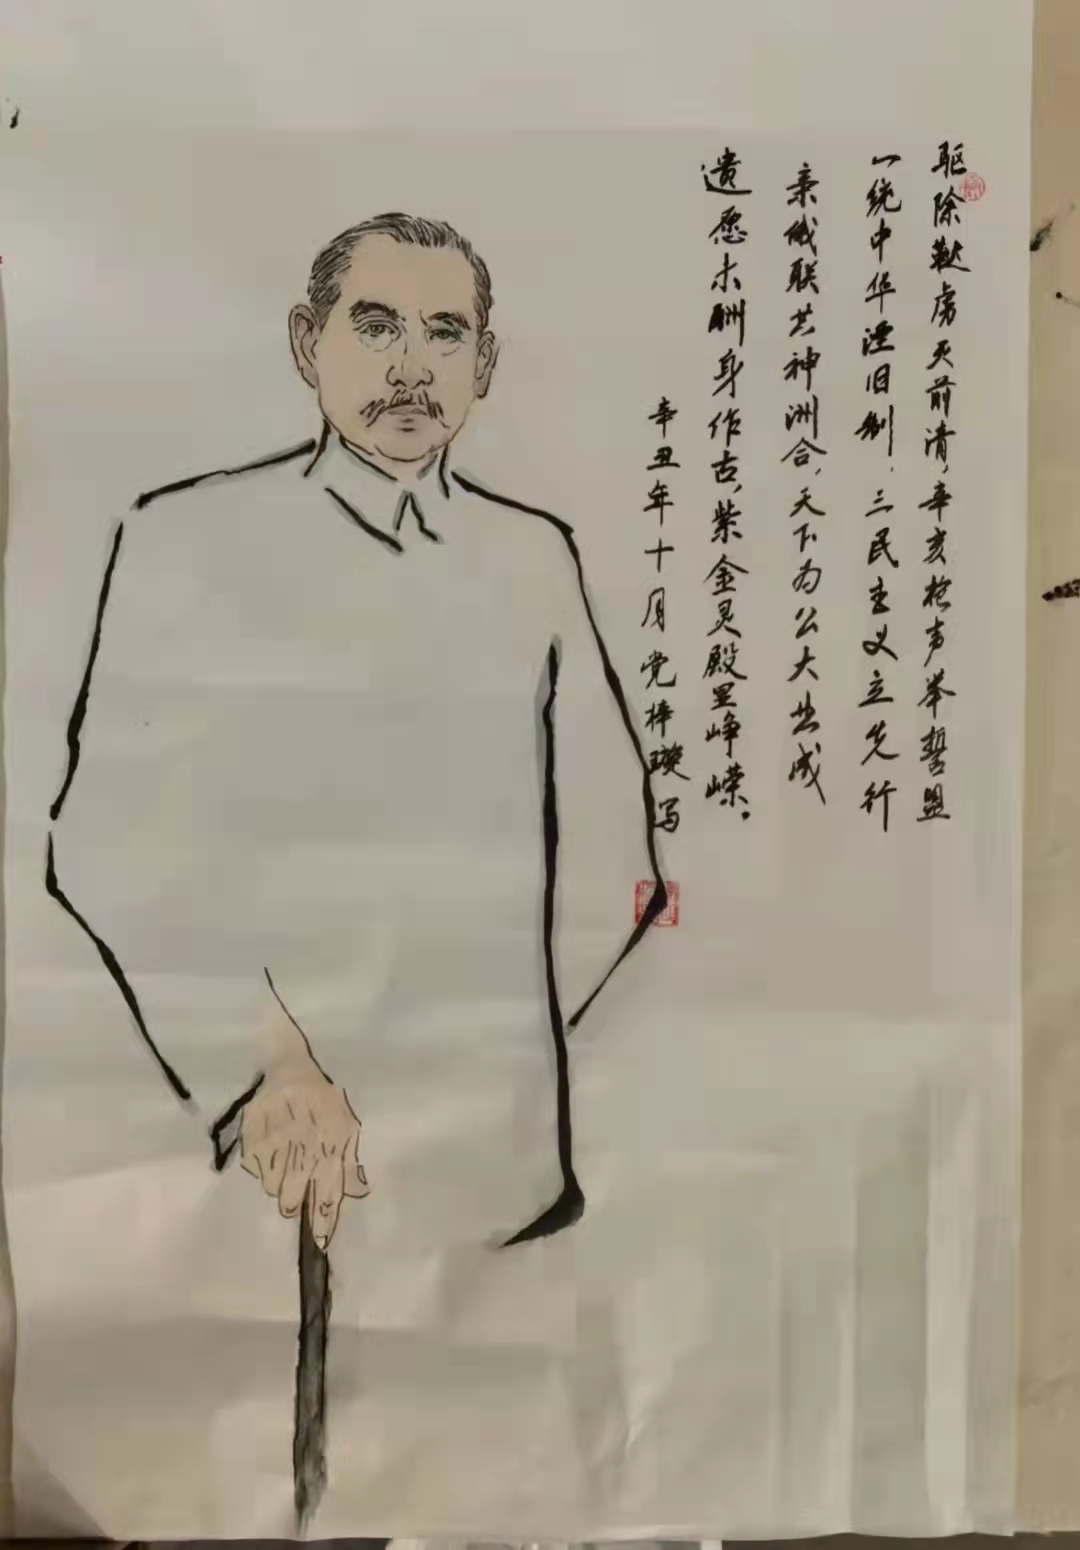 驱除鞑虏灭前清，辛亥枪声举誓盟
一统中华湮旧制，三民主义立先行
亲俄联共神洲合，天下为公大业成
遗愿未酬身作古，紫金灵殿里峥嵘。
辛丑年十月党梓璇写